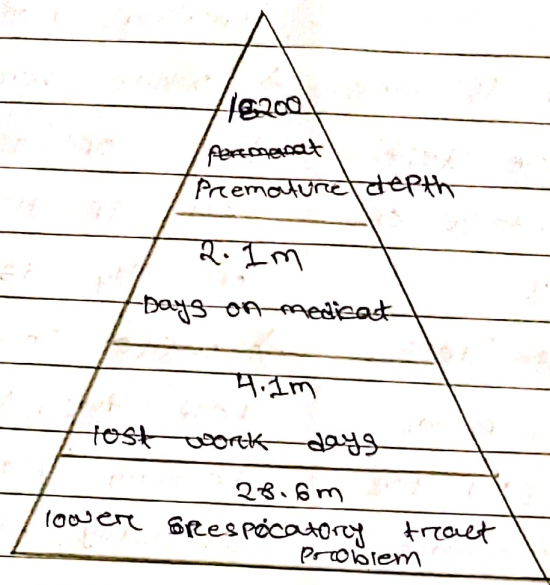 18200
Premature depth
2.1m
Days on medicat
4.1m
lost work days
28.6m
lowere respicatory tract
Problem